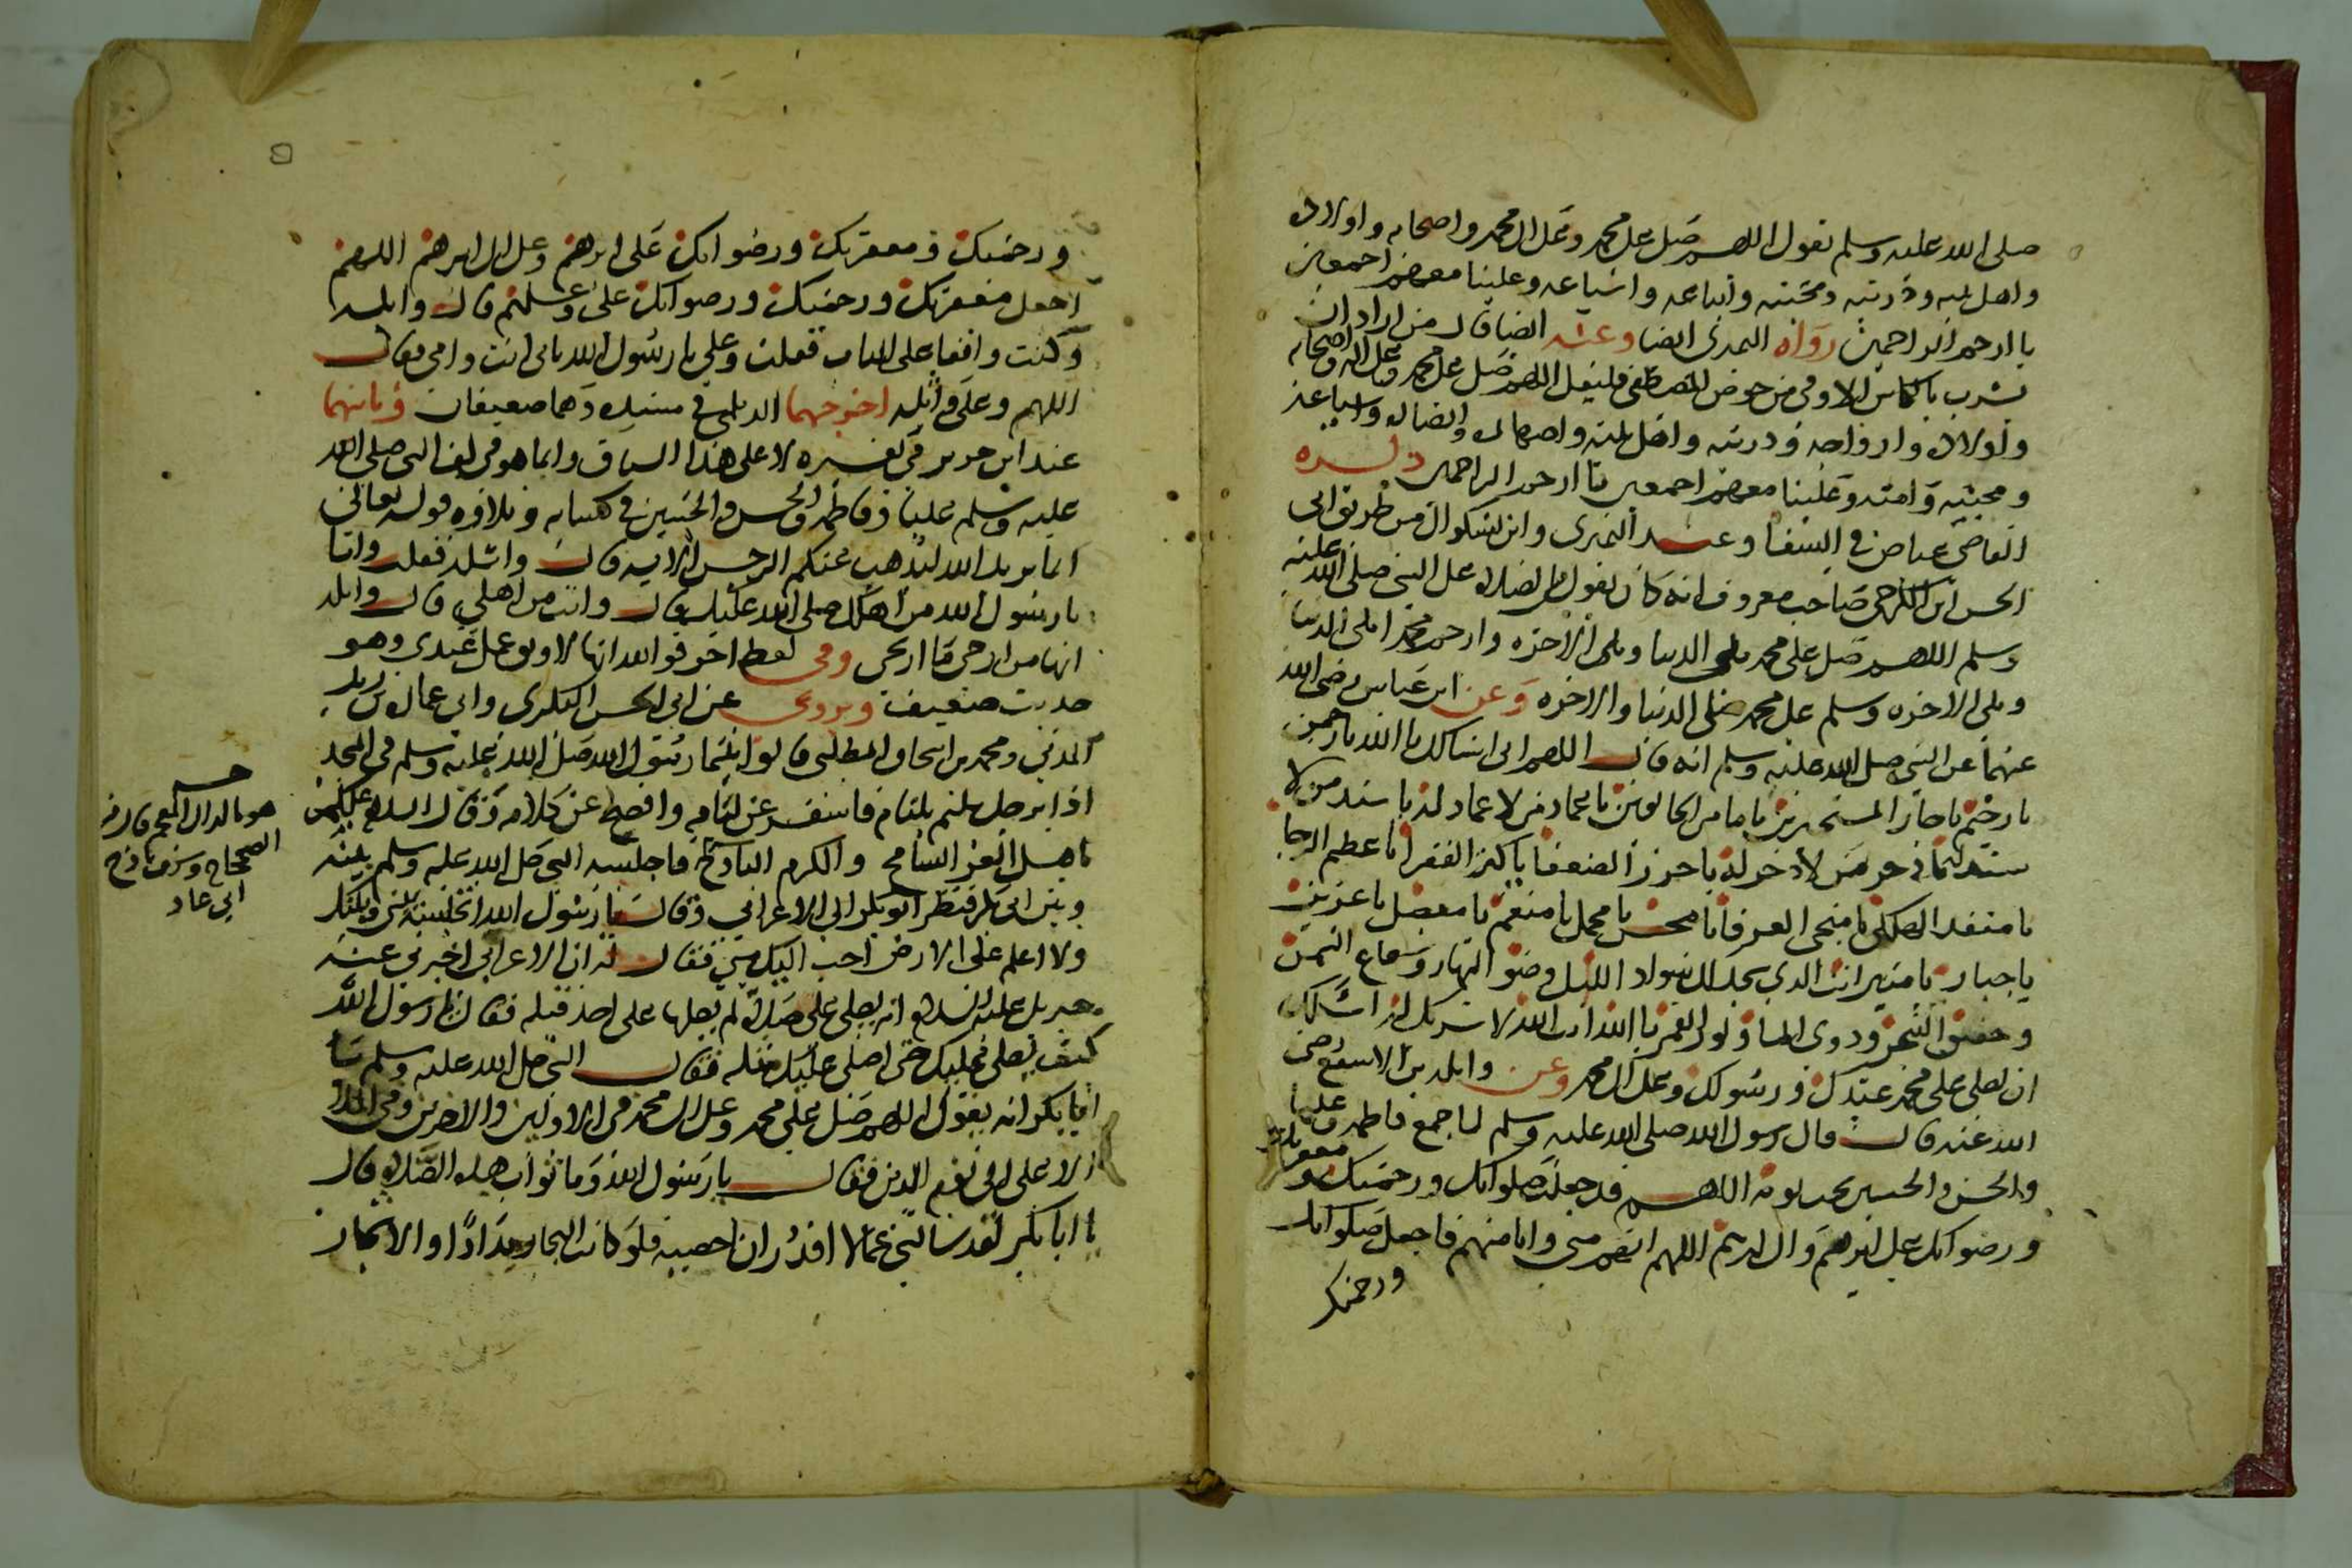 صلى الله عليه وسلم يقول اللهم صل على محمد وعلى ال محمد واصحابه واولاده
واهل بيته وذريته ومحبيه واتباعه واشياعه وعلينا معهم اجمعين
يا ارحم الراحمين رواه النميري ايضا وعنه ايضا قال من اراد ان
يشرب بالكاس الاوفى من حوض المصطفى فليقل اللهم صل على محمد وعلى اله واصحابه
واولاده وازواجه وذريته واهل بيته واصهاره وانصاره واشياعه
ومحبيه وامته وعلينا معهم اجمعين يا ارحم الراحمين ذكره
القاضي عياض في الشفا وعند النميري وابن بشكوال من طريق ابي
الحسن ابن الكرخي صاحب معروف انه كان يقول في الصلاة على النبي صلى الله عليه
وسلم اللهم صل على محمد ملى الدنيا وملى الاخره وارحم محمدا ملى الدنيا
وملى الاخره وسلم على محمد ملى الدنيا والاخره وعن ابن عباس رضي الله
عنهما عن النبي صلى الله عليه وسلم انه قال اللهم اني اسالك يا الله يا رحمن
يا رحيم يا جار المستجيرين يا مامن الخايفين يا عماد من لا عماد له يا سند من لا
سند له يا ذخر من لا ذخر له يا حرز الضعفا يا كنز الفقرا يا عظيم الرجا
يا منقذ الهلكى يا منجي الغرقا يا محسن يا مجمل يا منعم يا مفضل يا عزيز
يا جبار يا منير انت الذي سجد لك سواد الليل وضو النهار وشعاع الشمس
وحفيف الشجر ودوي الما ونور القمر يا الله انت الله لا شريك لك اسالك
ان تصلي على محمد عبدك ورسولك وعلى ال محمد وعن واثلة بن الاسقع رضي
الله عنه قال قال رسول الله صلى الله عليه وسلم لما جمع فاطمة وعليا
والحسن والحسين تحت ثوبه اللهم قد جعلت صلواتك ورحمتك ومغفرتك
ورضوانك على ابرهيم وال ابرهيم اللهم انهم مني وانا منهم فاجعل صلواتك
ورحمتك
ورحمتك ومغفرتك ورضوانك على ابرهيم وعلى ال ابرهيم اللهم
اجعل مغفرتك ورحمتك ورضوانك علي وعليهم قال واثلة
وكنت واقفا على الباب فقلت وعلي يا رسول الله بابي انت وامي فقال
اللهم وعلى واثلة اخرجهما الديلمي في مسنده وهما ضعيفان وثانيهما
عند ابن جرير في تفسيره لا على هذا السياق وانما هو في لف النبي صلى الله
عليه وسلم عليا وفاطمة والحسن والحسين في كسايه وتلاوة قوله تعالى
انما يريد الله ليذهب عنكم الرجس الاية قال واثلة فقلت وانا
يا رسول الله من اهلك صلى الله عليك قال وانت من اهلي قال واثلة
انها من ارجى ما ارتجي وفي لفظ اخر فوالله انها لاوثق عمل عندي وهو
حديث ضعيف ويروى عن ابي الحسن البكري وابي عمارة بن زيد
المدني ومحمد بن اسحاق المطلبي قالوا بينما رسول الله صلى الله عليه وسلم في المسجد
اذا برجل ملثم بلثام فاسفر عن لثامه وافصح عن كلامه وقال السلام عليكم
يا اهل العز الشامخ والكرم الباذخ فاجلسه النبي صلى الله عليه وسلم بينه
وبين ابي بكر فنظر ابو بكر الى الاعرابي وقال يا رسول الله اتجلسه بيني وبينك
ولا اعلم على الارض احب اليك مني فقال له ان الاعرابي اخبرني عنه
جبريل عليه السلام انه يصلي علي صلاة لم يصلها علي احد قبله فقال يا رسول الله
كيف يصلي عليك حتى اصلي عليك مثله فقال النبي صلى الله عليه وسلم يا
ابا بكر انه يقول اللهم صل على محمد وعلى ال محمد في الاولين والاخرين وفي الملا
الاعلى الى يوم الدين فقال يا رسول الله وما ثواب هذه الصلاة قال
يا ابا بكر لقد سالتني عما لا اقدر ان احصيه فلو كانت البحار مدادا والاشجار
هو بالدال المعجم قال في
الصحاح وشرف باذخ
اي عال